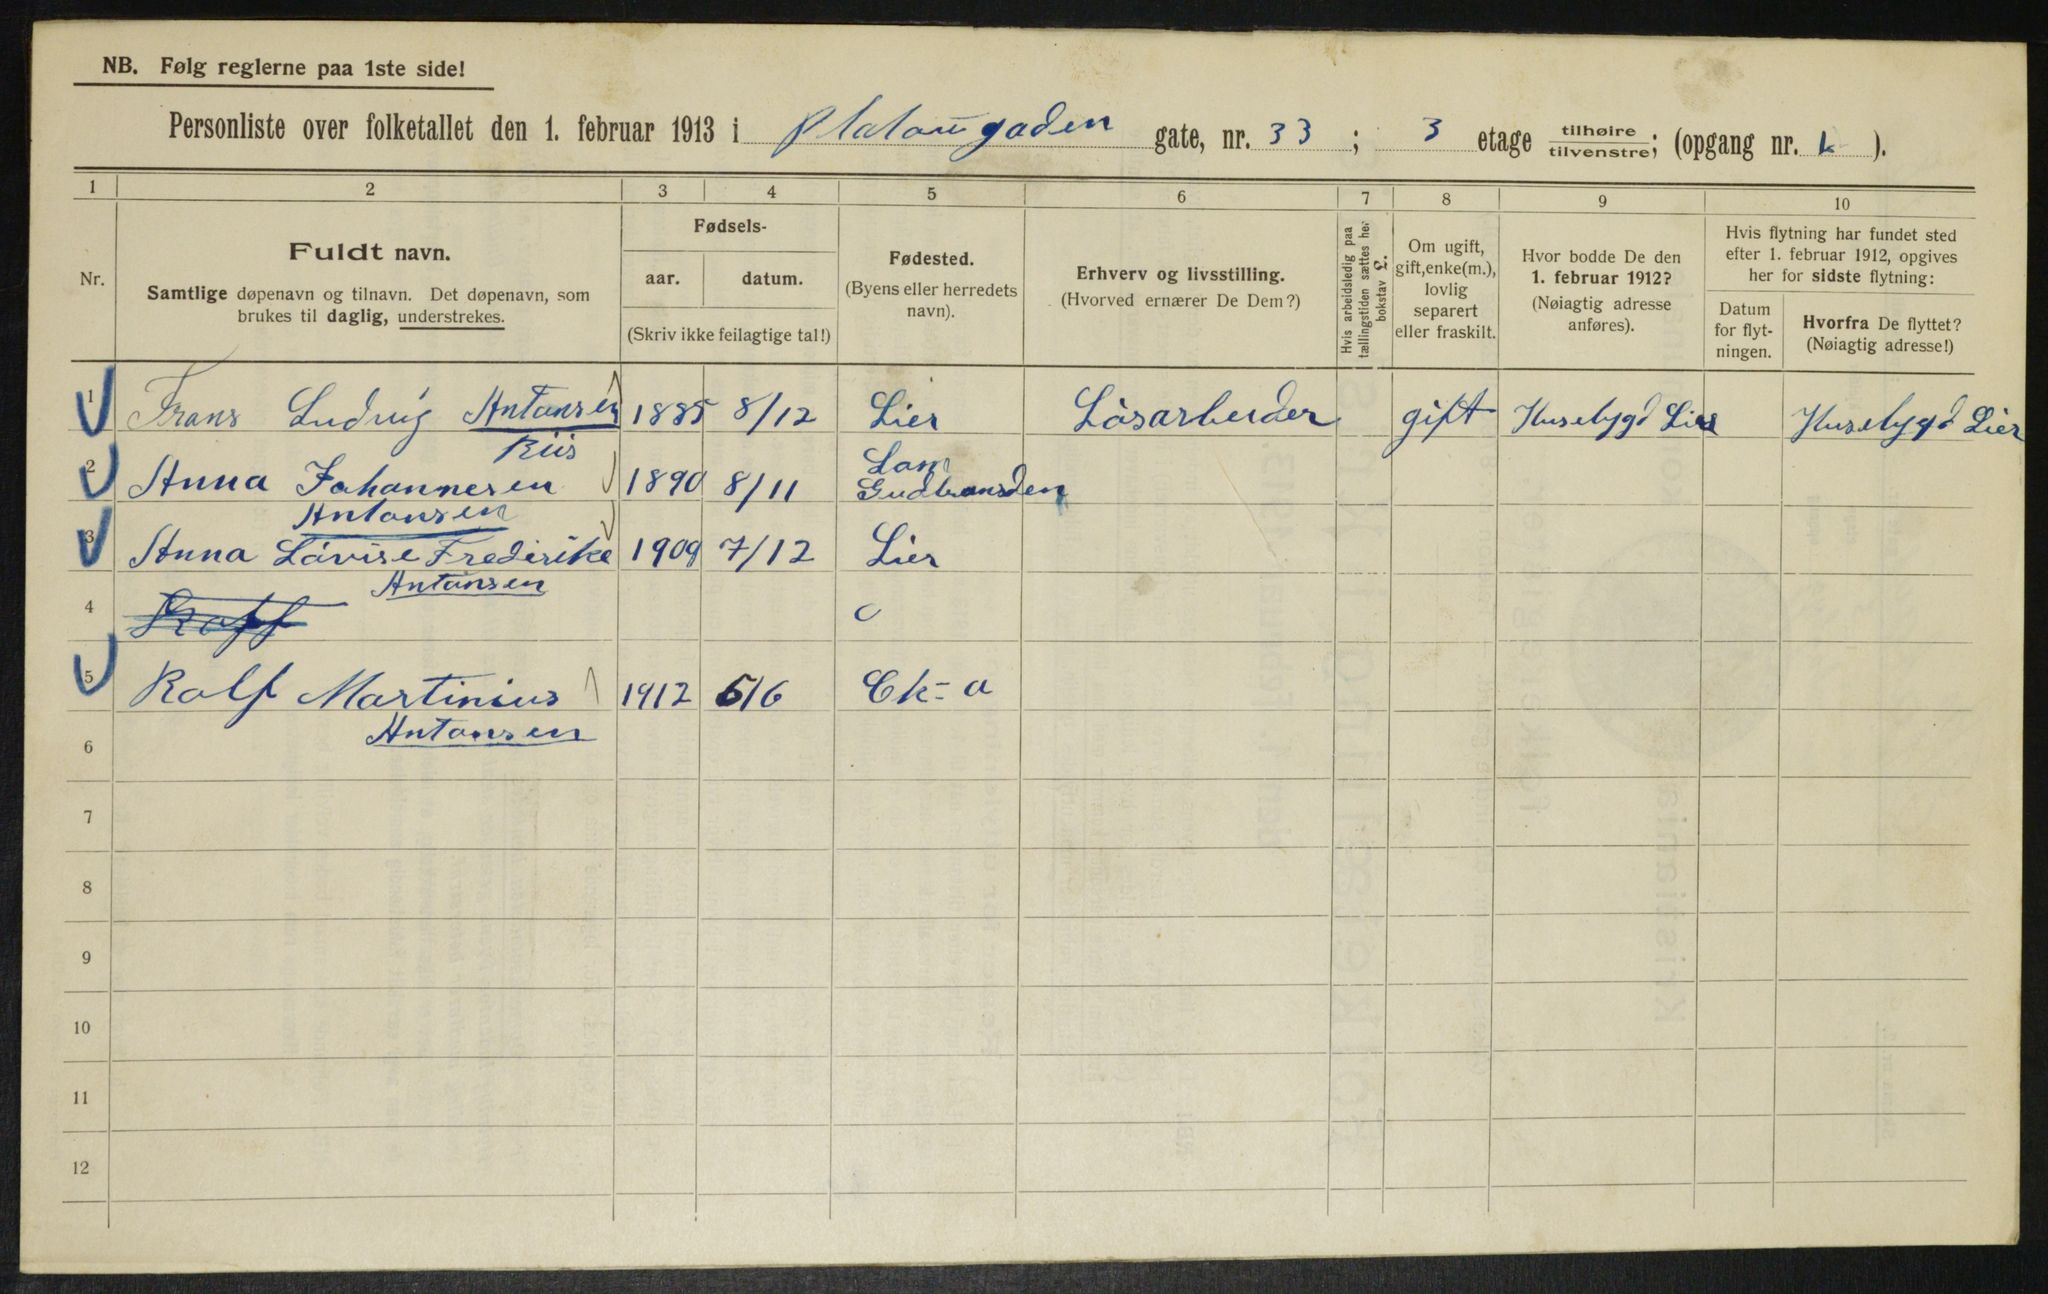 NB. Følg reglerne paa 1ste side!
Personliste over folketallet den 1. februar 1913 i Platougaden gate, nr. 33 ; 3 etage tilhøire / tilvenstre; (opgang nr. ).
1 2 3 4 5 6 7 8 9 10
Nr.
Fuldt navn.
Samtlige døpenavn og tilnavn. Det døpenavn, som
brukes til daglig, understrekes.
Fødsels-
aar. datum.
(Skriv ikke feilagtige tal!)
Fødested.
(Byens eller herredets
navn).
Erhverv og livsstilling.
(Hvorved ernærer De Dem?)
Hvis arbeidsledig paa
tællingstiden sættes her
bokstav L.
Om ugift,
gift, enke(m.),
lovlig
separert
eller fraskilt.
Hvor bodde De den
1. februar 1912?
(Nøiagtig adresse
anføres).
Hvis flytning har fundet sted
efter 1. februar 1912, opgives
her for sidste flytning:
Datum
for flyt-
ningen.
Hvorfra De flyttet?
(Nøiagtig adresse!)
1 Frans Ludvig Antonsen 1885 8/12 Lier Løsarbeider gift Husebygd Lier Husebygd Lier
Riis
2 Anna Johannesen 1890 8/11 Lom Gudbransden
Antonsen
3 Anna Lovise Frederike 1909 7/12 Lier
Antonsen
4
5 Rolf Martinius 1912 6/6 Ck-a
Antonsen
6
7
8
9
10
11
12